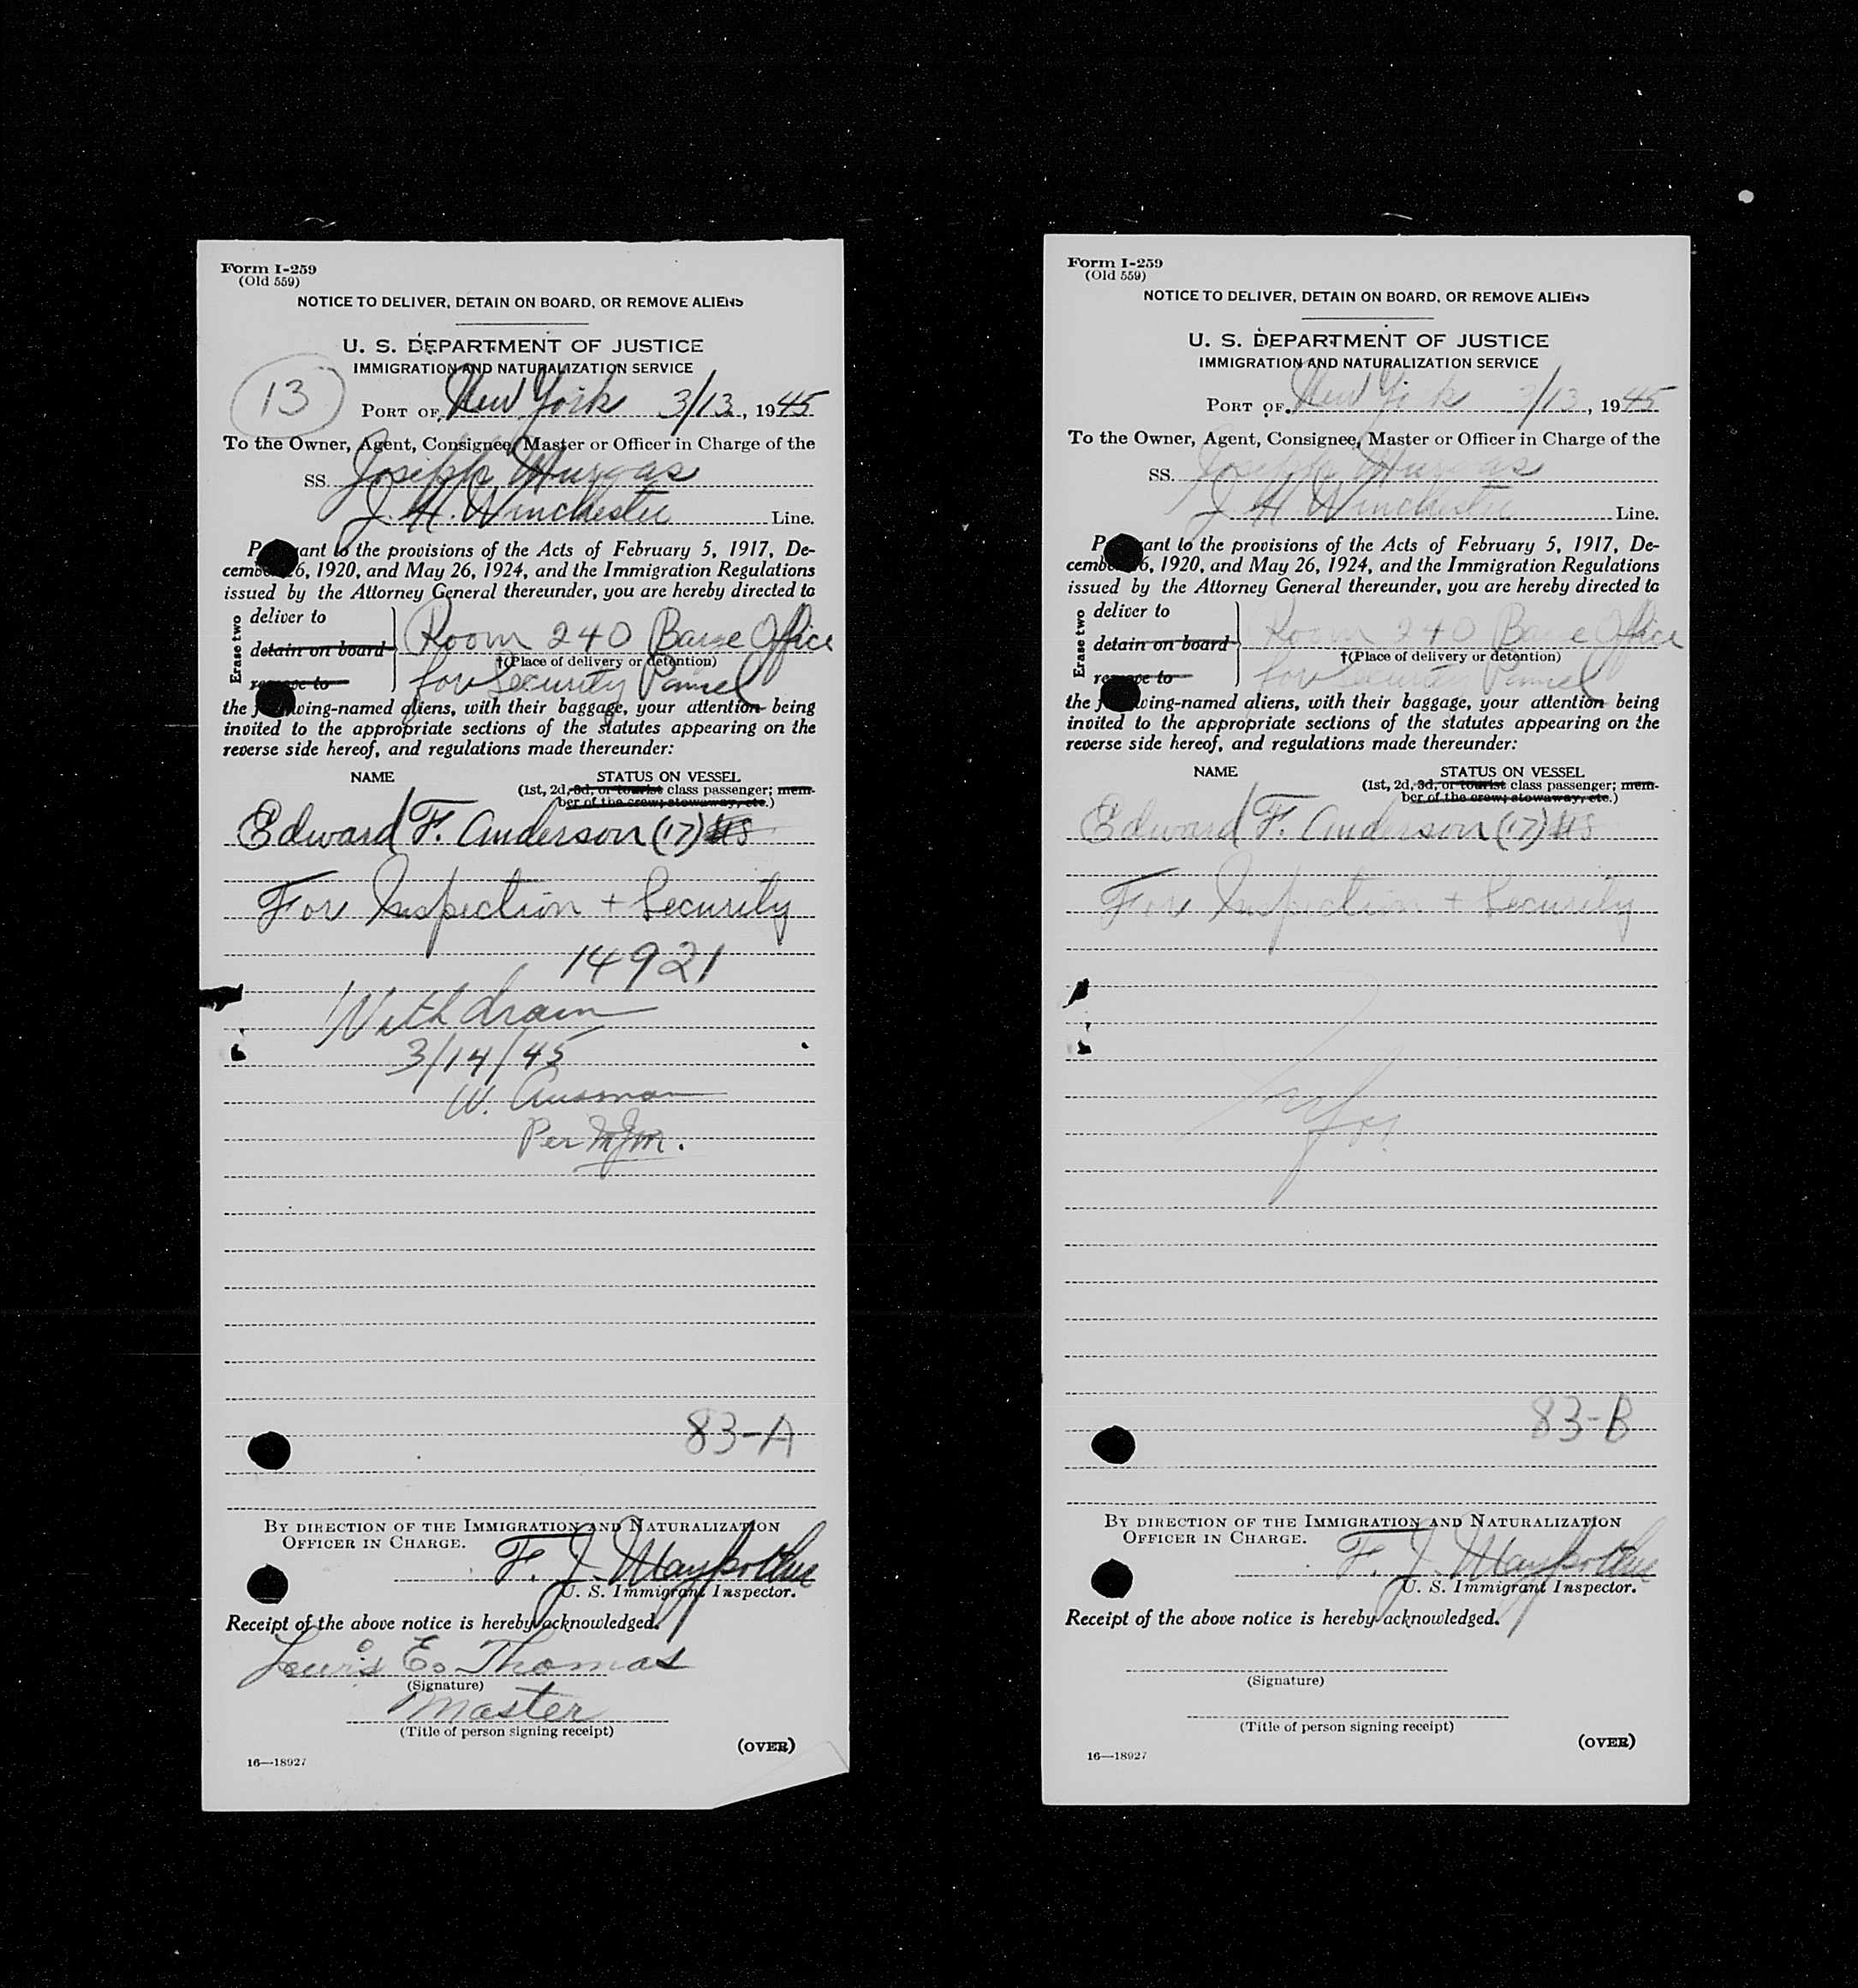 Form I-259
(Old 559)
NOTICE TO DELIVER, DETAIN ON BOARD, OR REMOVE ALIENS
U. S. DEPARTMENT OF JUSTICE
IMMIGRATION AND NATURALIZATION SERVICE
13
PORT OF New York 3/13, 1945
To the Owner, Agent, Consignee, Master or Officer in Charge of the
SS. Joseph Murgas
J. H. Winchester Line.
ant to the provisions of the Acts of February 5, 1917, De-
cemb 6, 1920, and May 26, 1924, and the Immigration Regulations
issued by the Attorney General thereunder, you are hereby directed to
Erase two
deliver to
detain on board
Room 240 Barge Office
†(Place of delivery or detention)
remove to
for Security Pannel
the wing-named aliens, with their baggage, your attention being
invited to the appropriate sections of the statutes appearing on the
reverse side hereof, and regulations made thereunder:
NAME STATUS ON VESSEL
(1st, 2d, 3d, or tourist class passenger; mem-
ber of the crew; stowaway, etc.)
Edward F. Anderson (17)
For Inspection + Security
14921
Withdrawn
3/14/45
W. Ausman
Per MJM.
83-A
BY DIRECTION OF THE IMMIGRATION AND NATURALIZATION
OFFICER IN CHARGE.
F. J.
U. S. Immigrant Inspector.
Receipt of the above notice is hereby acknowledged.
Lewis E. Thomas
(Signature)
Master
(Title of person signing receipt)
(OVER)
16—18927
Form I-259
(Old 559)
NOTICE TO DELIVER, DETAIN ON BOARD, OR REMOVE ALIENS
U. S. DEPARTMENT OF JUSTICE
IMMIGRATION AND NATURALIZATION SERVICE
PORT OF New York 3/13, 1945
To the Owner, Agent, Consignee, Master or Officer in Charge of the
SS. Joseph Murgas
J H Winchester Line.
ant to the provisions of the Acts of February 5, 1917, De-
cemb 6, 1920, and May 26, 1924, and the Immigration Regulations
issued by the Attorney General thereunder, you are hereby directed to
Erase two
deliver to
detain on board
Room 240 Barge Office
†(Place of delivery or detention)
remove to
for Security Pannel
the wing-named aliens, with their baggage, your attention being
invited to the appropriate sections of the statutes appearing on the
reverse side hereof, and regulations made thereunder:
NAME STATUS ON VESSEL
(1st, 2d, 3d, or tourist class passenger; mem-
ber of the crew; stowaway, etc.)
Edward F. Anderson (17)
For Inspection + Security
83-B
BY DIRECTION OF THE IMMIGRATION AND NATURALIZATION
OFFICER IN CHARGE.
F. J.
U. S. Immigrant Inspector.
Receipt of the above notice is hereby acknowledged.
(Signature)
(Title of person signing receipt)
(OVER)
16—18927